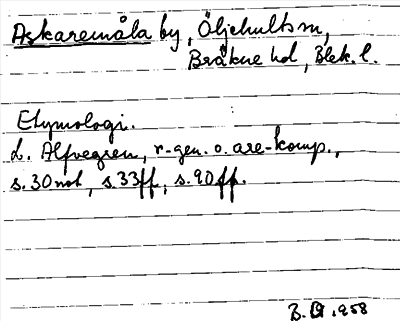 Askaremåla by, Öljehults sn,
Bräkne hd, Blek. l.
Etymologi.
L. Alfvegren, r-gen. o. are-komp.,
s. 30 not, s. 33 ff, s. 90 ff.
1958